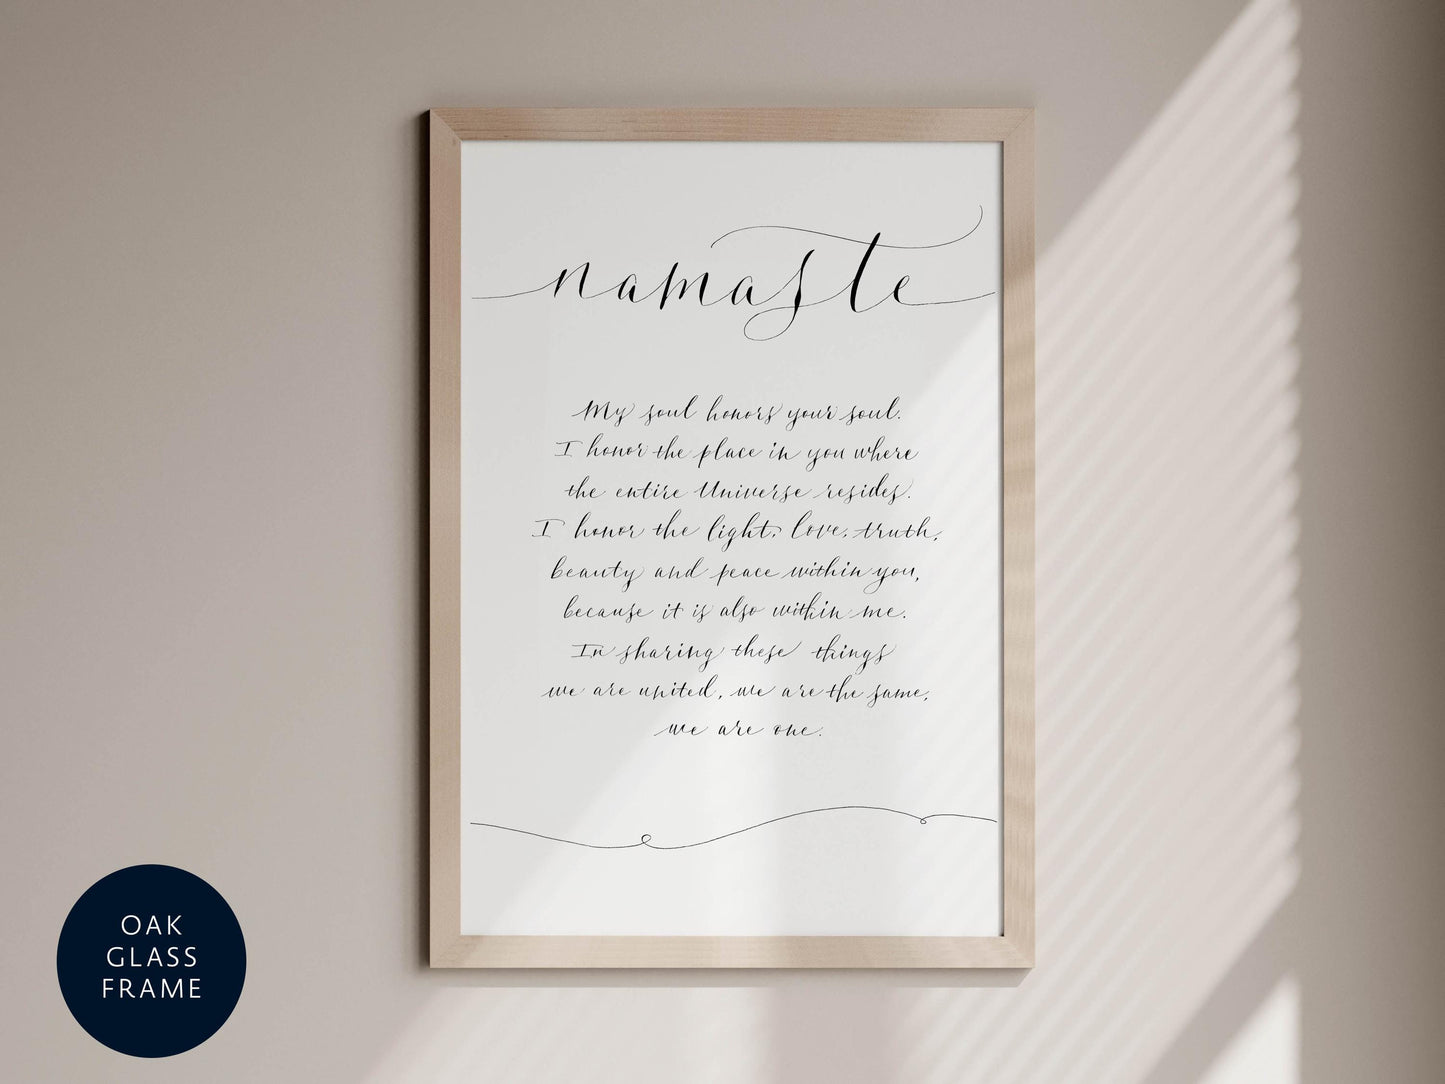 namaste
My soul honors your soul.
I honor the place in you where
the entire Universe resides.
I honor the light, love, truth,
beauty and peace within you,
because it is also within me.
In sharing these things
we are united, we are the same,
we are one.
OAK
GLASS
FRAME